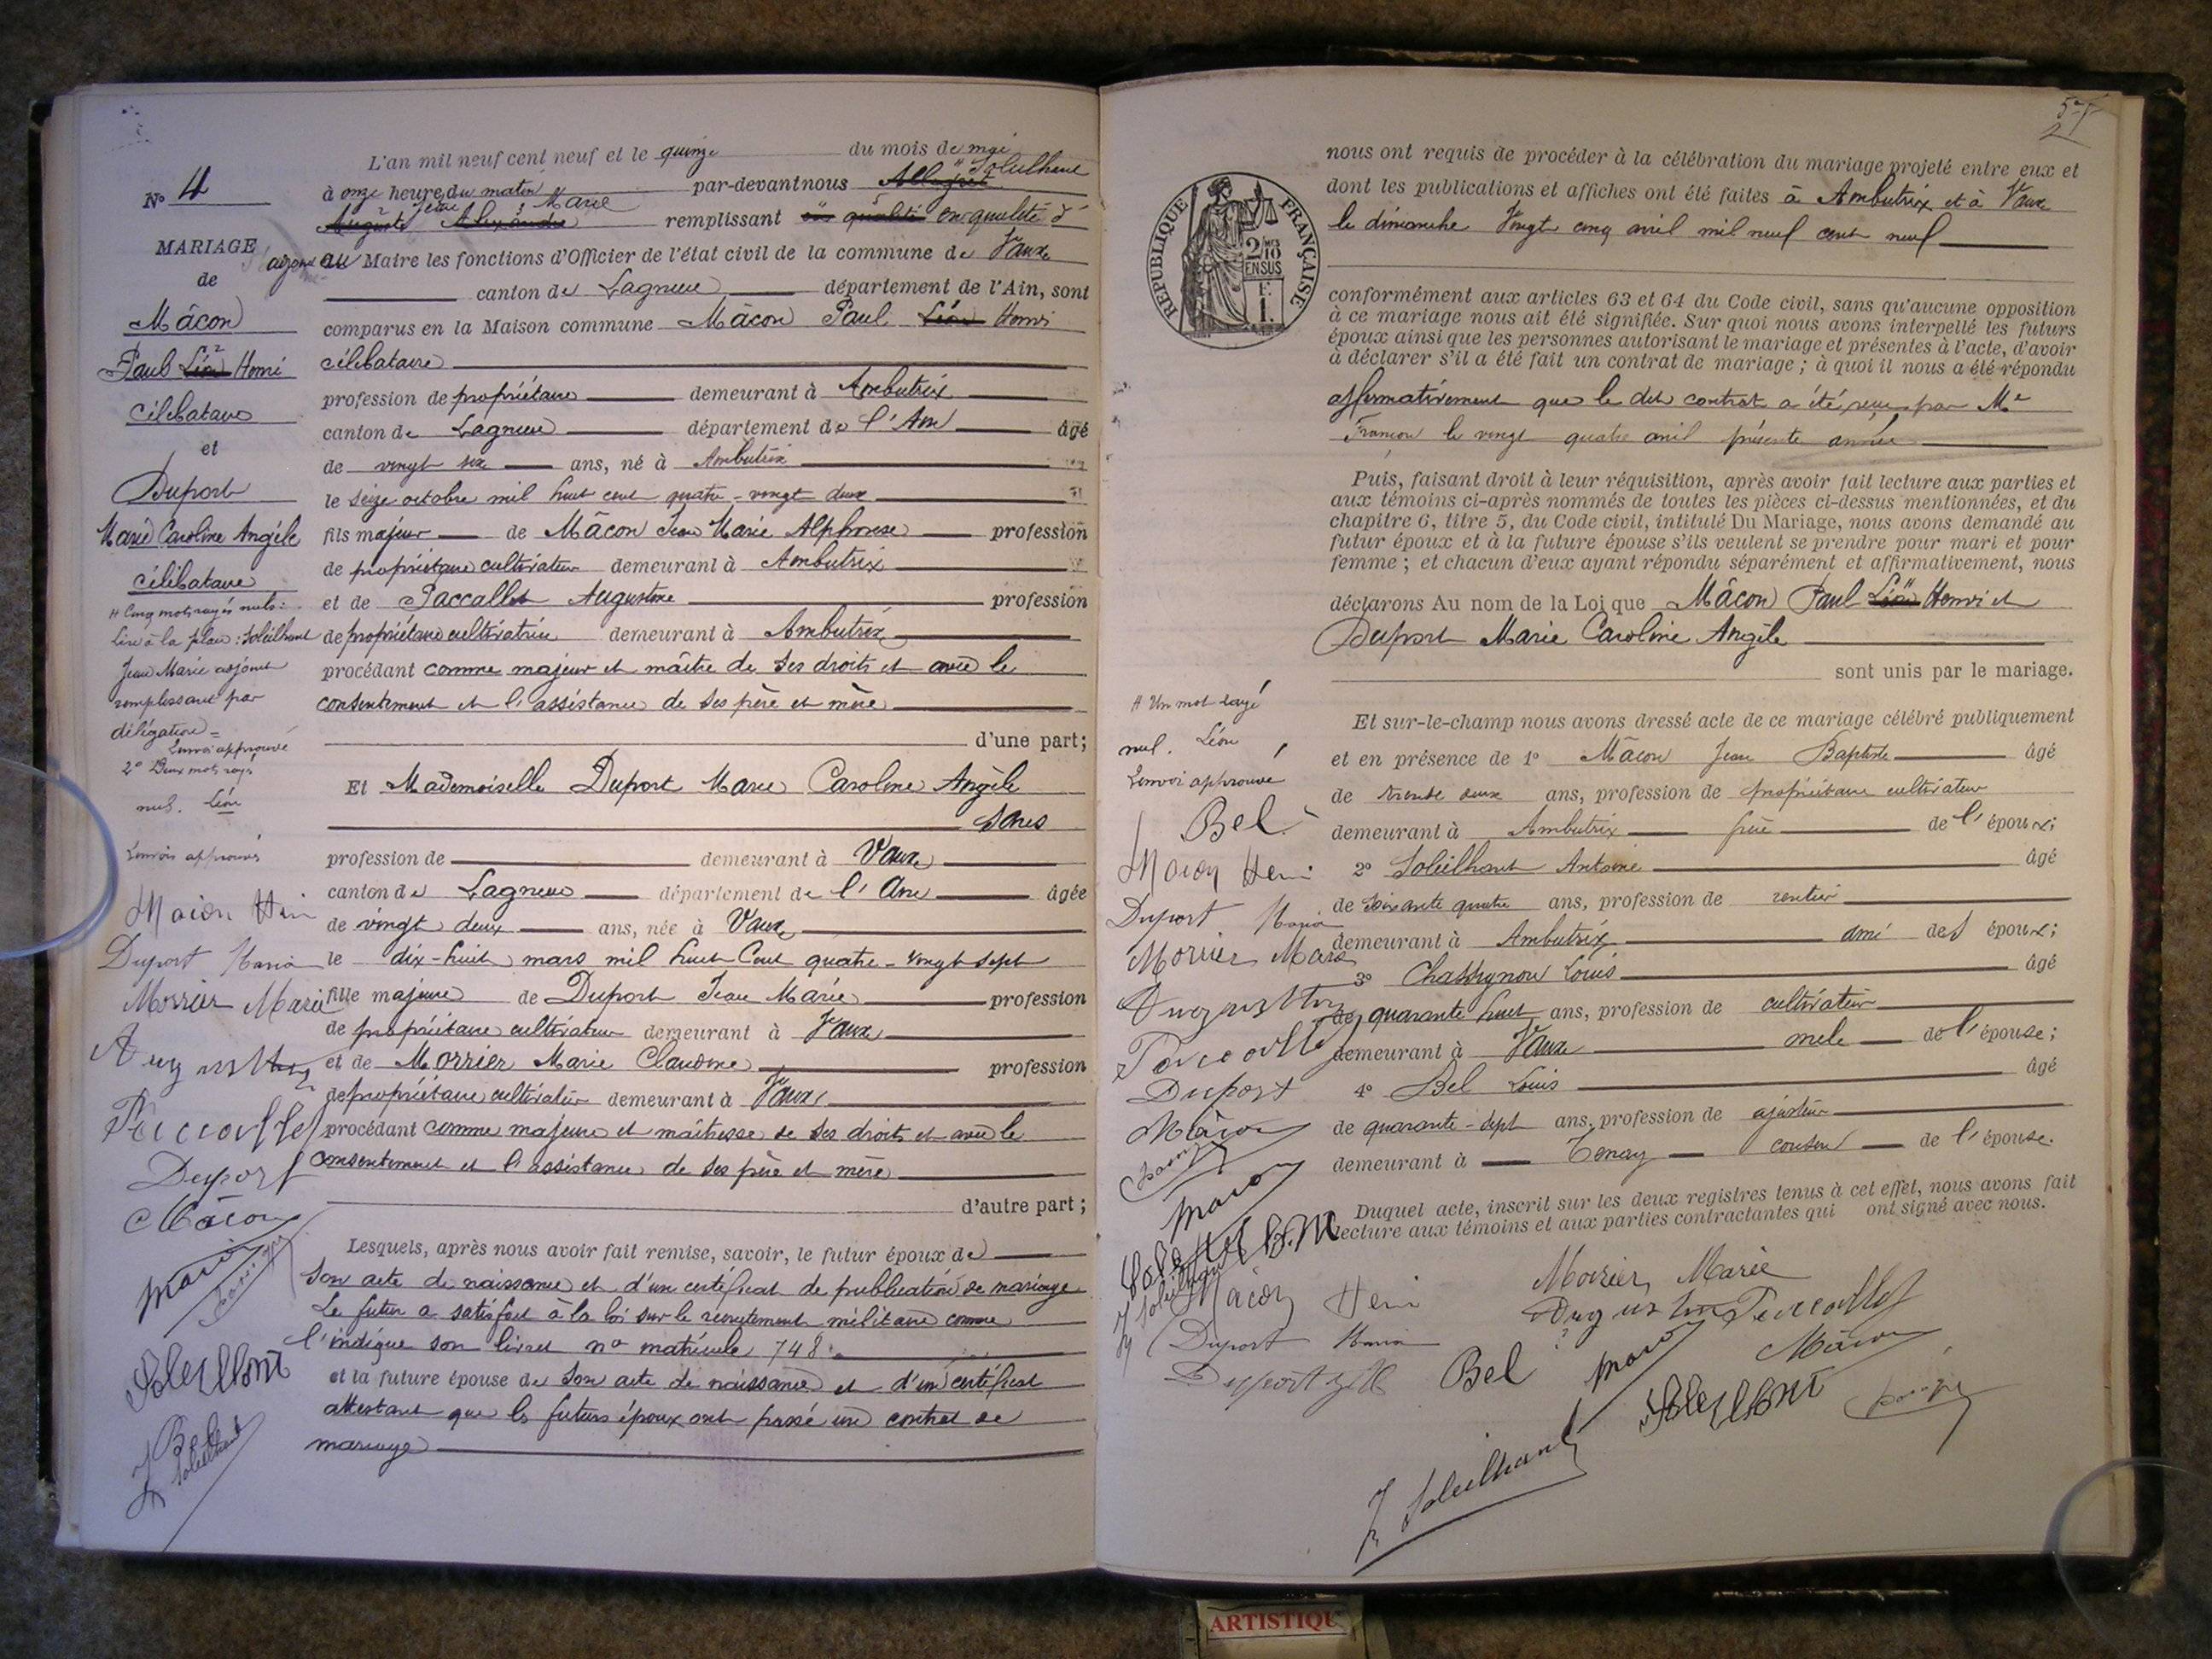 L'an mil neuf cent neuf et le quinze du mois de mai
à onze heures du matin par-devant nous Soleilhant
Jean Marie remplissant en qualité d'
adjoint au Maire les fonctions d'Officier de l'état civil de la commune de Vaux
canton de Lagnieu département de l'Ain, sont
comparus en la Maison commune Mâcon Paul Léon Henri
célibataire
profession de propriétaire demeurant à Ambutrix
canton de Lagnieu département de l'Ain âgé
de vingt six ans, né à Ambutrix
le seize octobre mil huit cent quatre-vingt deux
fils majeur de Mâcon Jean Marie Alphonse profession
de propriétaire cultivateur demeurant à Ambutrix
et de Paccallet Augustine profession
de propriétaire cultivatrice demeurant à Ambutrix
procédant comme majeur et maître de ses droits et avec le
consentement et l'assistance de ses père et mère
d'une part;
Et Mademoiselle Duport Marie Caroline Angèle
sans
profession de demeurant à Vaux
canton de Lagnieu département de l'Ain âgée
de vingt deux ans, née à Vaux
le dix-huit mars mil huit Cent quatre-vingt sept
fille majeure de Duport Jean Marie profession
de propriétaire cultivateur demeurant à Vaux
et de Morrier Marie Claudine profession
de propriétaire cultivateur demeurant à Vaux
procédant comme majeure et maîtresse de ses droits et avec le
consentement et l'assistance de ses père et mère
d'autre part;
Lesquels, après nous avoir fait remise, savoir, le futur époux de
son acte de naissance et d'un certificat de publication de mariage
Le futur a satisfait à la loi sur le recrutement militaire comme
l'indique son livret n° matricule 748.
et la future épouse de son acte de naissance et d'un certificat
attestant que les futurs époux ont passé un contrat de
mariage
N° 4
MARIAGE
de
Mâcon
Paul Léon Henri
célibataire
et
Duport
Marie Caroline Angèle
célibataire
Cinq mots rayés nuls:
Lire à la place: Soleilhant
Jean Marie adjoint
remplissant par
délégation =
Renvoi approuvé
2° Deux mots rayés
nuls. Léon
Renvois approuvés
Macon Henri
Duport Maria
Morrier Marie
Augustine
Duport
Mâcon
Macon
Soleilhant
Bel
J Soleilhant
nous ont requis de procéder à la célébration du mariage projeté entre eux et
dont les publications et affiches ont été faites à Ambutrix et à Vaux
le dimanche Vingt cinq avril mil neuf cent neuf
RÉPUBLIQUE FRANÇAISE
2/10
EN SUS
F.
1.
conformément aux articles 63 et 64 du Code civil, sans qu'aucune opposition
à ce mariage nous ait été signifiée. Sur quoi nous avons interpellé les futurs
époux ainsi que les personnes autorisant le mariage et présentes à l'acte, d'avoir
à déclarer s'il a été fait un contrat de mariage; à quoi il nous a été répondu
affirmativement que le dit contrat a été reçu par Me
le vingt quatre avril présente année
Puis, faisant droit à leur réquisition, après avoir fait lecture aux parties et
aux témoins ci-après nommés de toutes les pièces ci-dessus mentionnées, et du
chapitre 6, titre 5, du Code civil, intitulé Du Mariage, nous avons demandé au
futur époux et à la future épouse s'ils veulent se prendre pour mari et pour
femme; et chacun d'eux ayant répondu séparément et affirmativement, nous
déclarons Au nom de la Loi que Mâcon Paul Léon Henri et
Duport Marie Caroline Angèle
sont unis par le mariage.
Et sur-le-champ nous avons dressé acte de ce mariage célébré publiquement
et en présence de 1° Mâcon Jean Baptiste âgé
de trente deux ans, profession de propriétaire cultivateur
demeurant à Ambutrix frère de l'époux;
2° Soleilhant Antoine âgé
de soixante quatre ans, profession de rentier
demeurant à Ambutrix ami des époux;
3° Louis âgé
de quarante huit ans, profession de cultivateur
demeurant à Vaux de l'épouse;
4° Bel Louis âgé
de quarante-sept ans, profession de ajusteur
demeurant à Tenay cousin de l'épouse.
Duquel acte, inscrit sur les deux registres tenus à cet effet, nous avons fait
lecture aux témoins et aux parties contractantes qui ont signé avec nous.
Un mot rayé
nul. Léon
Renvoi approuvé
Bel
Macon Henri
Duport Maria
Morrier Marie
Augustine
Duport
Mâcon
Macon
Mâcon Henri
Duport Maria
Morrier Marie
Augustine
Bel
Macon
Mâcon
Soleilhant
J Soleilhant
ARTISTIQU